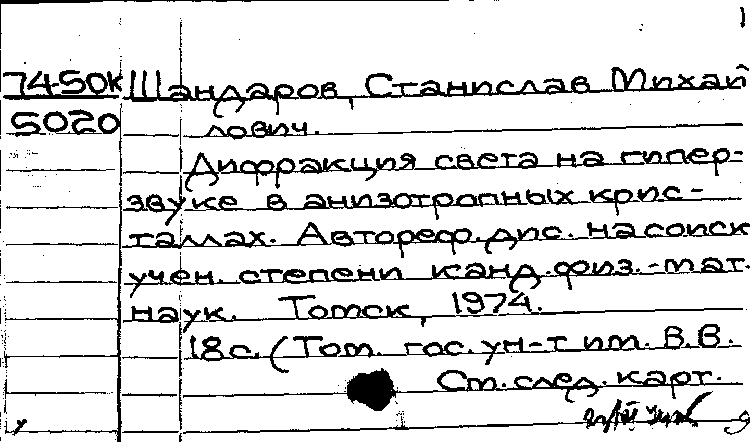 1
74-50К Шандаров, Станислав Михай
5020 лович.
Дифракция света на гипер-
звуке в анизотропных крис-
таллах. Автореф. дис. на соиск
учен. степени канд. физ.-мат.
наук. Томск, 1974.
18 с. (Том. гос. ун-т им. В.В.
См. след. карт.